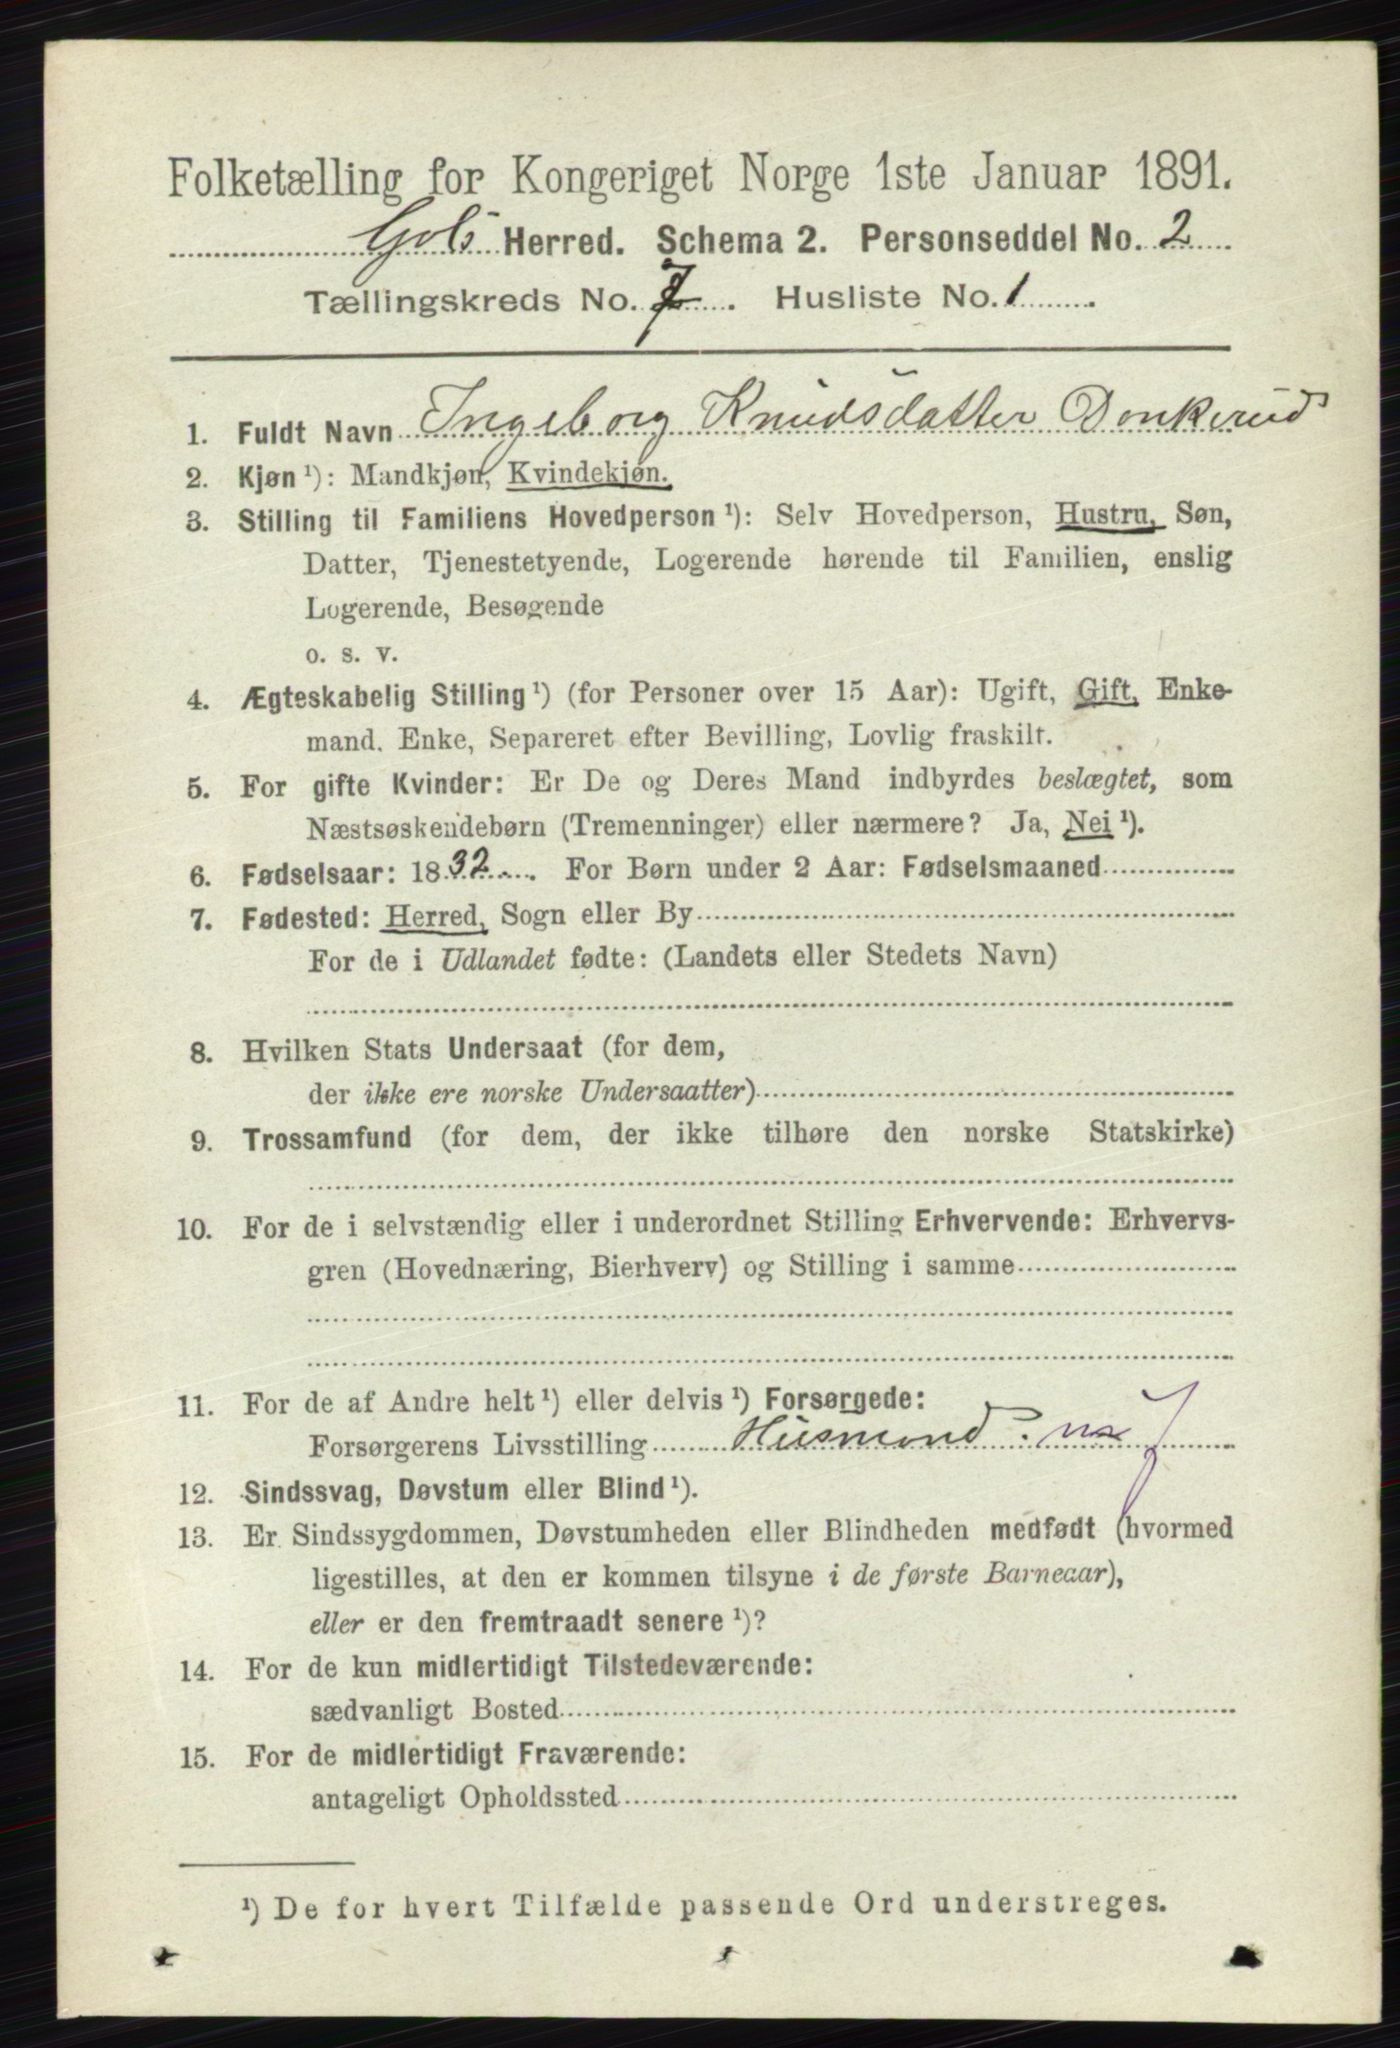 Folketælling for Kongeriget Norge 1ste Januar 1891.
Gols Herred. Schema 2. Personseddel No. 2
Tællingskreds No. 7. Husliste No. 1
1. Fuldt Navn Ingeborg Knudsdatter Donkerud
2. Kjøn ¹): Mandkjøn, Kvindekjøn.
3. Stilling til Familiens Hovedperson ¹): Selv Hovedperson, Hustru, Søn,
Datter, Tjenestetyende, Logerende hørende til Familien, enslig
Logerende, Besøgende
o. s. v.
4. Ægteskabelig Stilling ¹) (for Personer over 15 Aar): Ugift, Gift, Enke-
mand, Enke, Separeret efter Bevilling, Lovlig fraskilt.
5. For gifte Kvinder: Er De og Deres Mand indbyrdes beslægtet, som
Næstsøskendebørn (Tremenninger) eller nærmere? Ja, Nei ¹).
6. Fødselsaar: 1832. For Børn under 2 Aar: Fødselsmaaned
7. Fødested: Herred, Sogn eller By
For de i Udlandet fødte: (Landets eller Stedets Navn)
8. Hvilken Stats Undersaat (for dem,
der ikke ere norske Undersaatter)
9. Trossamfund (for dem, der ikke tilhøre den norske Statskirke)
10. For de i selvstændig eller i underordnet Stilling Erhvervende: Erhvervs-
gren (Hovednæring, Bierhverv) og Stilling i samme
11. For de af Andre helt ¹) eller delvis ¹) Forsørgede:
Forsørgerens Livsstilling Husmand.
12. Sindssvag, Døvstum eller Blind ¹).
13. Er Sindssygdommen, Døvstumheden eller Blindheden medfødt (hvormed
ligestilles, at den er kommen tilsyne i de første Barneaar),
eller er den fremtraadt senere ¹)?
14. For de kun midlertidigt Tilstedeværende:
sædvanligt Bosted
15. For de midlertidigt Fraværende:
antageligt Opholdssted
¹) De for hvert Tilfælde passende Ord understreges.